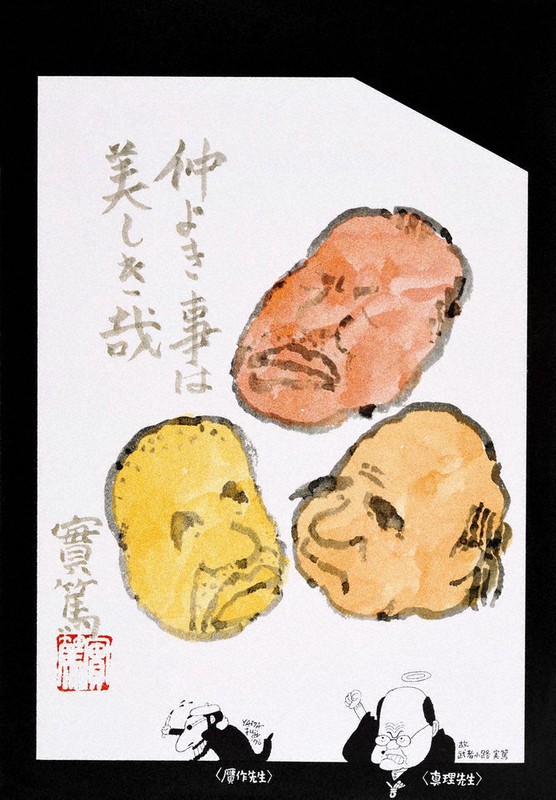 仲よき事は
美しき哉
實篤
實篤
〈贋作先生〉
故
武者小路 実篤
〈真理先生〉